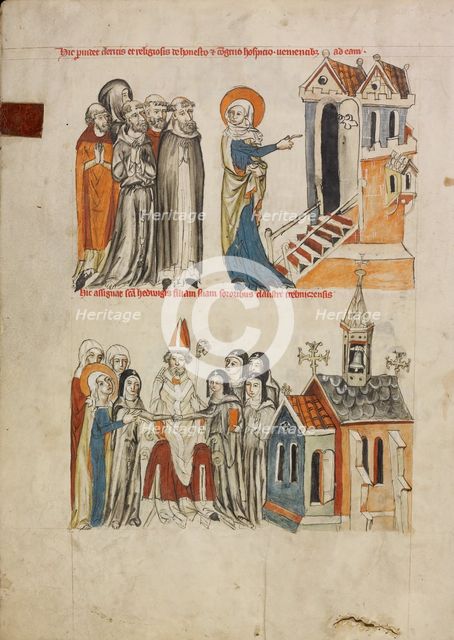 Hic providet clericis et religiosis de honesto et congruo hospicio venientibus ad eam.
Hic assignat sancta hedwigis filiam suam sororibus claustri trebnicensis
Heritage Heritage
Heritage Heritage
Heritage Heritage Heritage
Heritage Heritage
Heritage Heritage